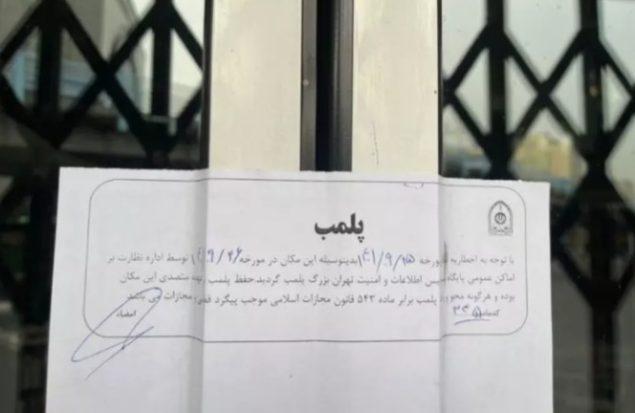 پلمب
با توجه به اخطاریه مورخه ۱۴۰۱/۹/۲۵ بدینوسیله این مکان در مورخه ۱۴۰۱/۹/۲۶ توسط اداره نظارت بر
اماکن عمومی پایگاه پلیس اطلاعات و امنیت تهران بزرگ پلمب گردید.حفظ پلمب بعهده متصدی این مکان
بوده و هرگونه محو پلمب برابر ماده ۵۴۳ قانون مجازات اسلامی موجب پیگرد قضایی مجازات می باشد
امضاء